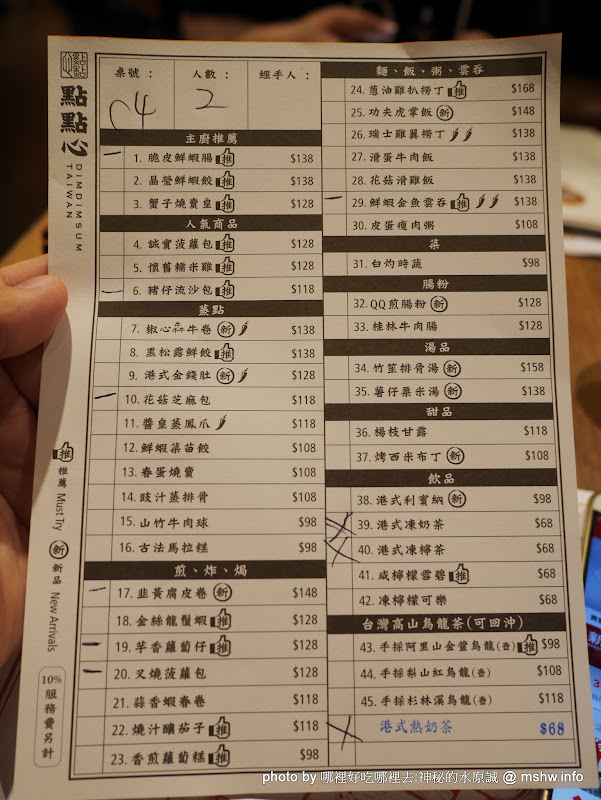 點點心
DIMDIMSUM
TAIWAN
桌號：
人數：
經手人：
C4
2
主廚推薦
1. 脆皮鮮蝦腸 推 $138
2. 晶瑩鮮蝦餃 推 $138
3. 蟹子燒賣皇 推 $138
人氣商品
4. 誠實菠蘿包 推 $128
5. 懷舊糯米雞 推 $128
6. 豬仔流沙包 推 $118
蒸點
7. 椒心牛卷 新 $138
8. 黑松露鮮餃 推 $138
9. 港式金錢肚 新 $128
10. 花菇芝麻包 $118
11. 醬皇蒸鳳爪 $118
12. 鮮蝦菜苗餃 $108
13. 春蛋燒賣 $108
14. 豉汁蒸排骨 $108
15. 山竹牛肉球 $98
16. 古法馬拉糕 $98
煎、炸、焗
17. 韭黃腐皮卷 新 $148
18. 金絲龍鬚蝦 推 $128
19. 芋香蘿蔔仔 推 $128
20. 叉燒菠蘿包 $128
21. 蒜香蝦春卷 $118
22. 燒汁釀茄子 推 $118
23. 香煎蘿蔔糕 推 $98
麵、飯、粥、雲吞
24. 蔥油雞扒撈丁 推 $168
25. 功夫虎掌飯 新 $148
26. 瑞士雞翼撈丁 $138
27. 滑蛋牛肉飯 $138
28. 花菇滑雞飯 $138
29. 鮮蝦金魚雲吞 推 $138
30. 皮蛋瘦肉粥 $108
菜
31. 白灼時蔬 $98
腸粉
32. QQ煎腸粉 新 $128
33. 桂林牛肉腸 $128
湯品
34. 竹笙排骨湯 新 $158
35. 薯仔粟米湯 新 $138
甜品
36. 楊枝甘露 $118
37. 烤西米布丁 新 $108
飲品
38. 港式利賓納 新 $98
39. 港式凍奶茶 $68
40. 港式凍檸茶 $68
41. 咸檸檬雪碧 推 $68
42. 凍檸檬可樂 $68
台灣高山烏龍茶(可回沖)
43. 手採阿里山金萱烏龍(壺) 推 $98
44. 手採梨山紅烏龍(壺) $108
45. 手採杉林溪烏龍(壺) $118
港式熱奶茶 $68
推 推薦 Must Try
新 新品 New Arrivals
10%服務費另計
photo by 哪裡好吃哪裡去:神秘的水原誠 @ mshw.info